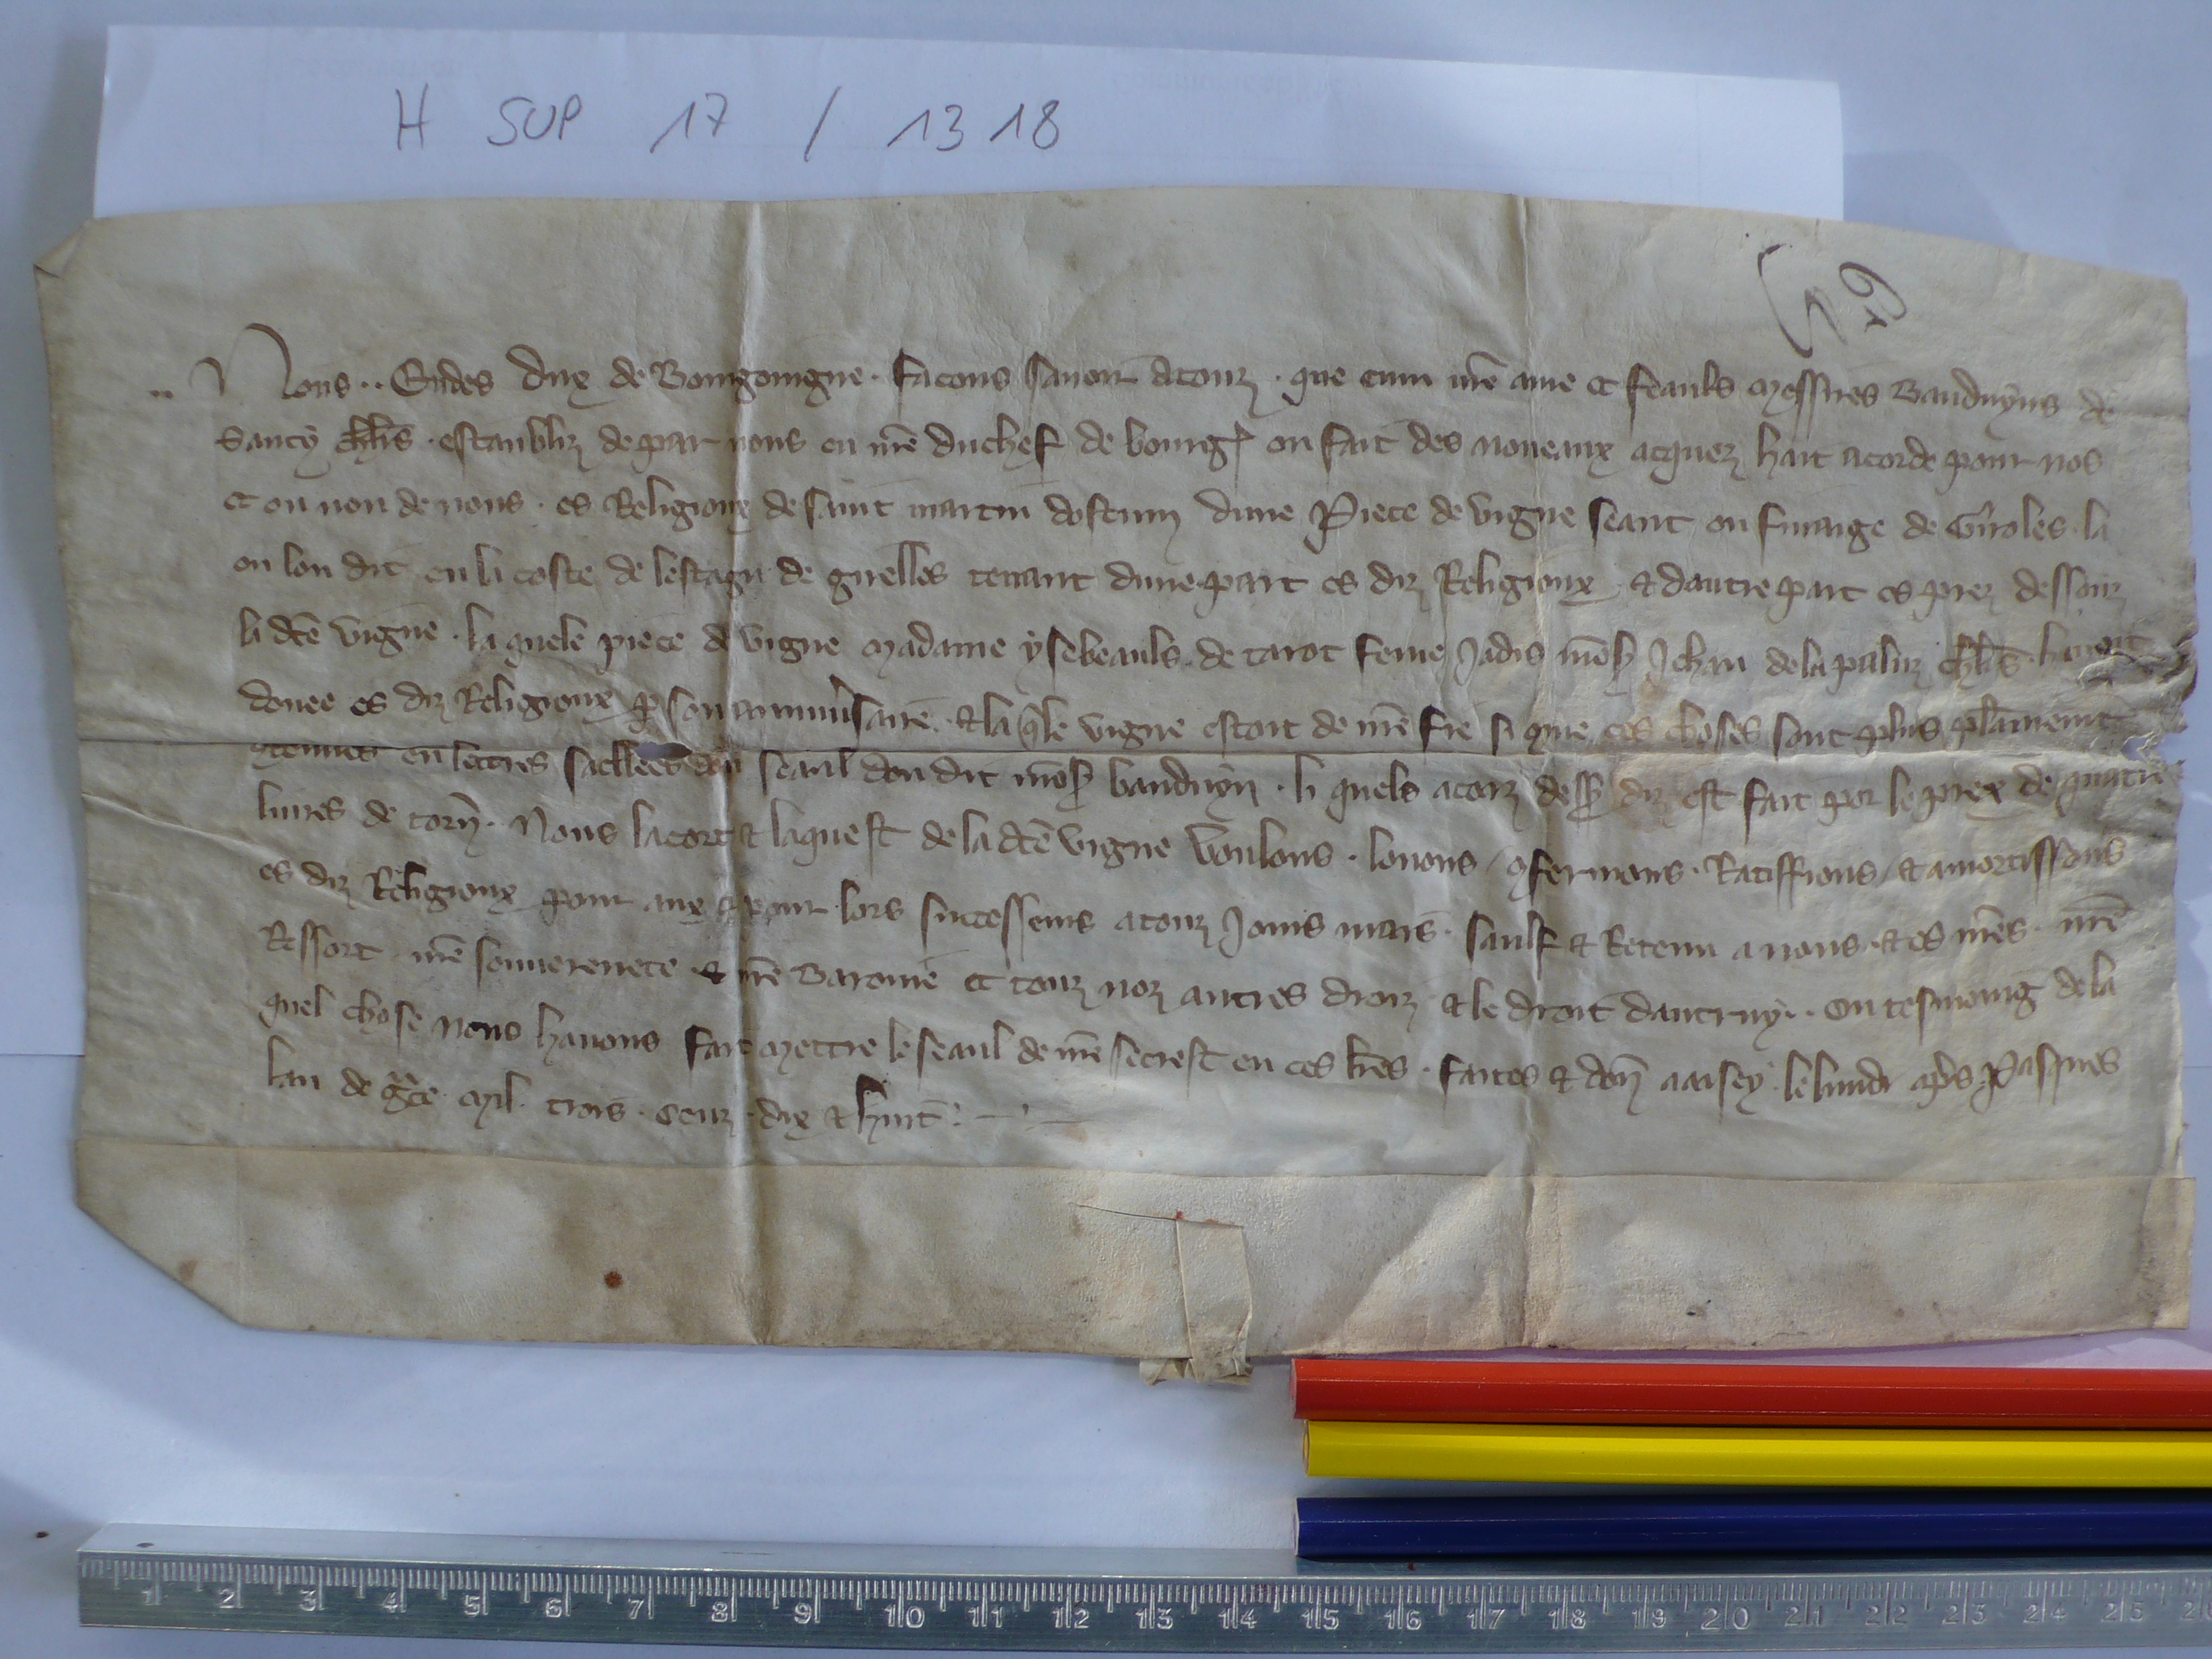 H SUP 17 / 1318
Nous .. Eudes dux de Bourgoingne . facons savoir a touz . que cum nr̄e ame et feauls messires Bauduyns de
Sancy chlr̄s . estaubliz de par nous en nr̄e duchef de bourḡ ou fait des noueaux acquez hait acorde pour nos
et ou non de nous . es Religioux de saint martin dostum dune Piece de vigne seant ou finaige de Giroles . la
ou lon dit en li coste de lestagn de gruelles tenant dune part es diz Religioux et dautre part es prez dessouz
li dc̄e vigne . la quele piece de vigne madame ysebeauls de tarot feme Jadis mōss Jehan de la paluz chlr̄s
donee es diz Religioux p son anniu̾saire . et la q̄le vigne estoit de nr̄e fie si que ces choses sont plus plainnemt
9tenues en lettres saellees dou seaul dou dit mōss bauduyn . li quels acorz dess diz est fait por le prex de quatre
liures de torn̄ . Nous lacort et laquest de la dc̄e vigne voulons . louons / 9fermons . Ratiffions / et amortissons
es diz Religioux pour aux et pour lors successeurs a touz Jours mais . saulf et Retenu a nous . et es nr̄es . nr̄e
Ressort nr̄e souuerenete et nr̄e Baronie et touz noz autres droiz et le droit dautruy .. On tesmoing de la
quel chose nous hauons fait mettre le seaul de nr̄e secrest en ces lr̄es . faites et don̄ a aisey . le lundi apr̄s Pasques
lan de gr̄ce mil . trois . cenz . dix et huit .
1 2 3 4 5 6 7 8 9 10 11 12 13 14 15 16 17 18 19 20 21 22 23 24 25